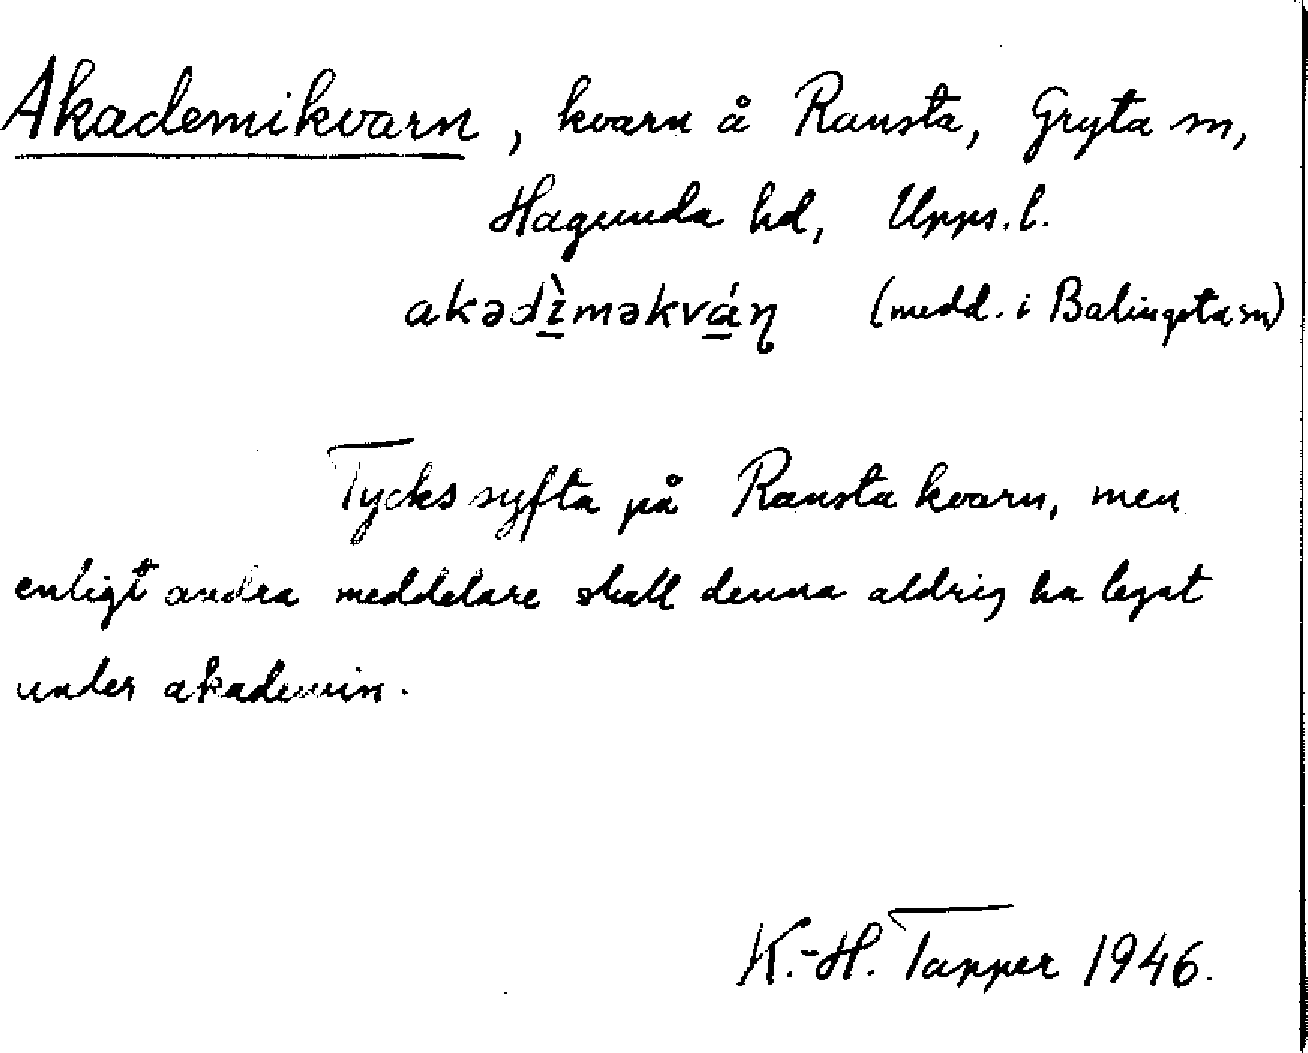 Akademikvarn, kvarn å Ransta, Gryta sn,
Hagunda hd, Upps. l.
akədì̱məkvá̱ɳ (medd. i Balingsta sn)
Tycks syfta på Ransta kvarn, men
enligt andra meddelare skall denna aldrig ha legat
under akademin.
K.-H. Tapper 1946.